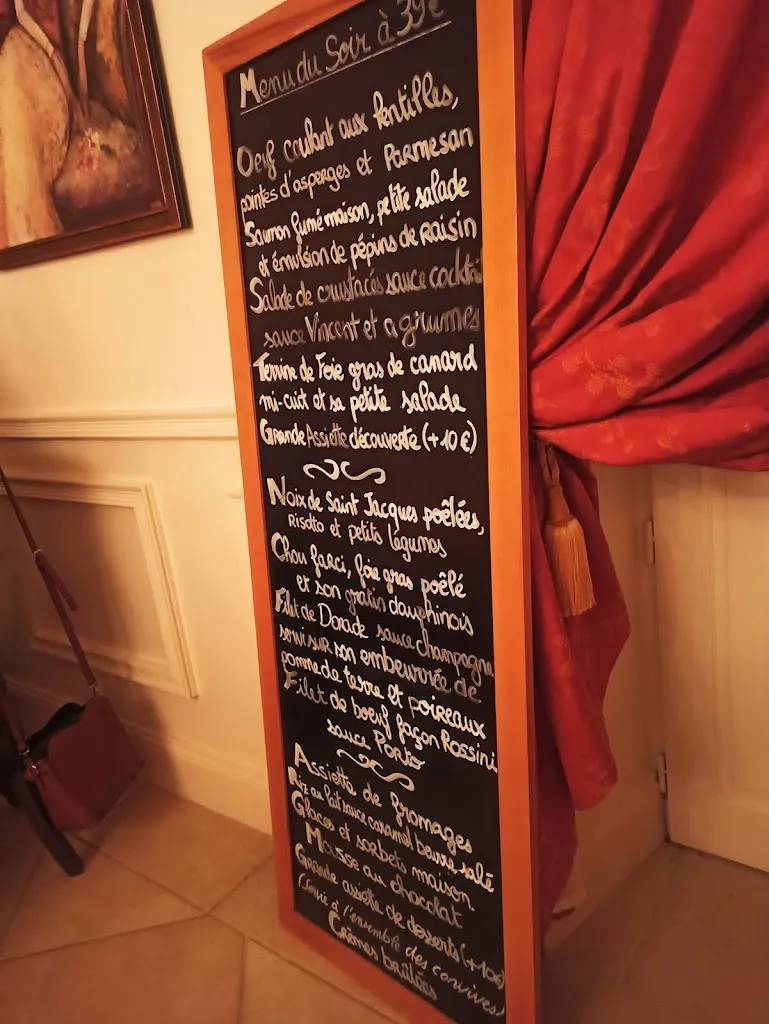 Menu du Soir à 39€
Oeuf coulant aux lentilles,
pointes d'asperges et Parmesan
Saumon fumé maison, petite salade
et émulsion de pépins de raisin
Salade de crustacés sauce cocktail
sauce Vincent et agrumes
Terrine de Foie gras de canard
mi-cuit et sa petite salade
Grande Assiette découverte (+10€)
Noix de Saint Jacques poêlées,
Risotto et petits légumes
Chou farci, foie gras poêlé
et son gratin dauphinois
Filet de Dorade sauce champagne
servi sur son embeurrée de
pomme de terre et poireaux
Filet de boeuf façon Rossini
sauce Porto
Assiette de fromages
Riz au lait sauce caramel beurre salé
Glaces et sorbets maison
Mousse au chocolat
Grande assiette de desserts (+10€)
(Servie à l'ensemble des convives)
Crèmes brûlées